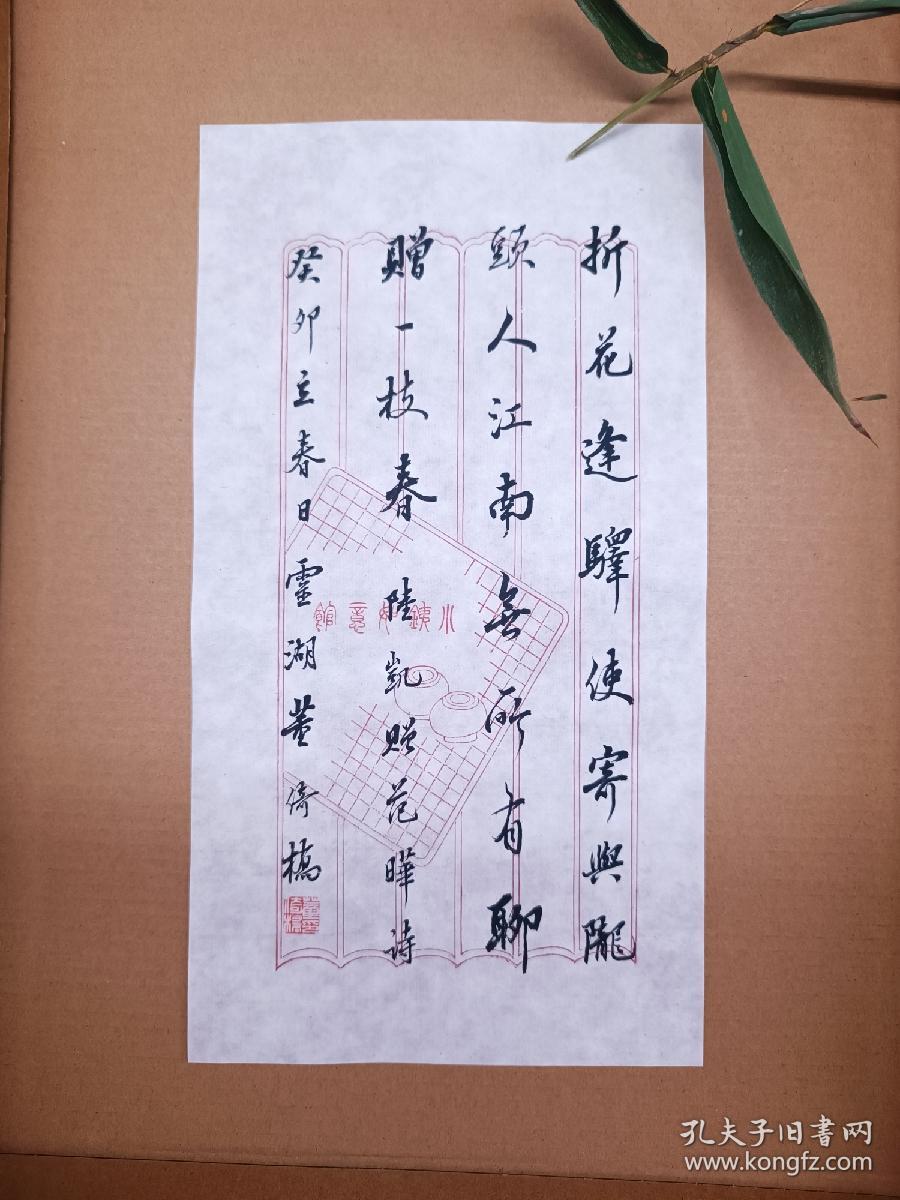 折花逢驛使寄與隴
頭人江南無所有聊
贈一枝春 陸凱贈范曄詩
癸卯立春日靈湖董倚橋
小鐵如意館
孔夫子旧书网
www.kongfz.com